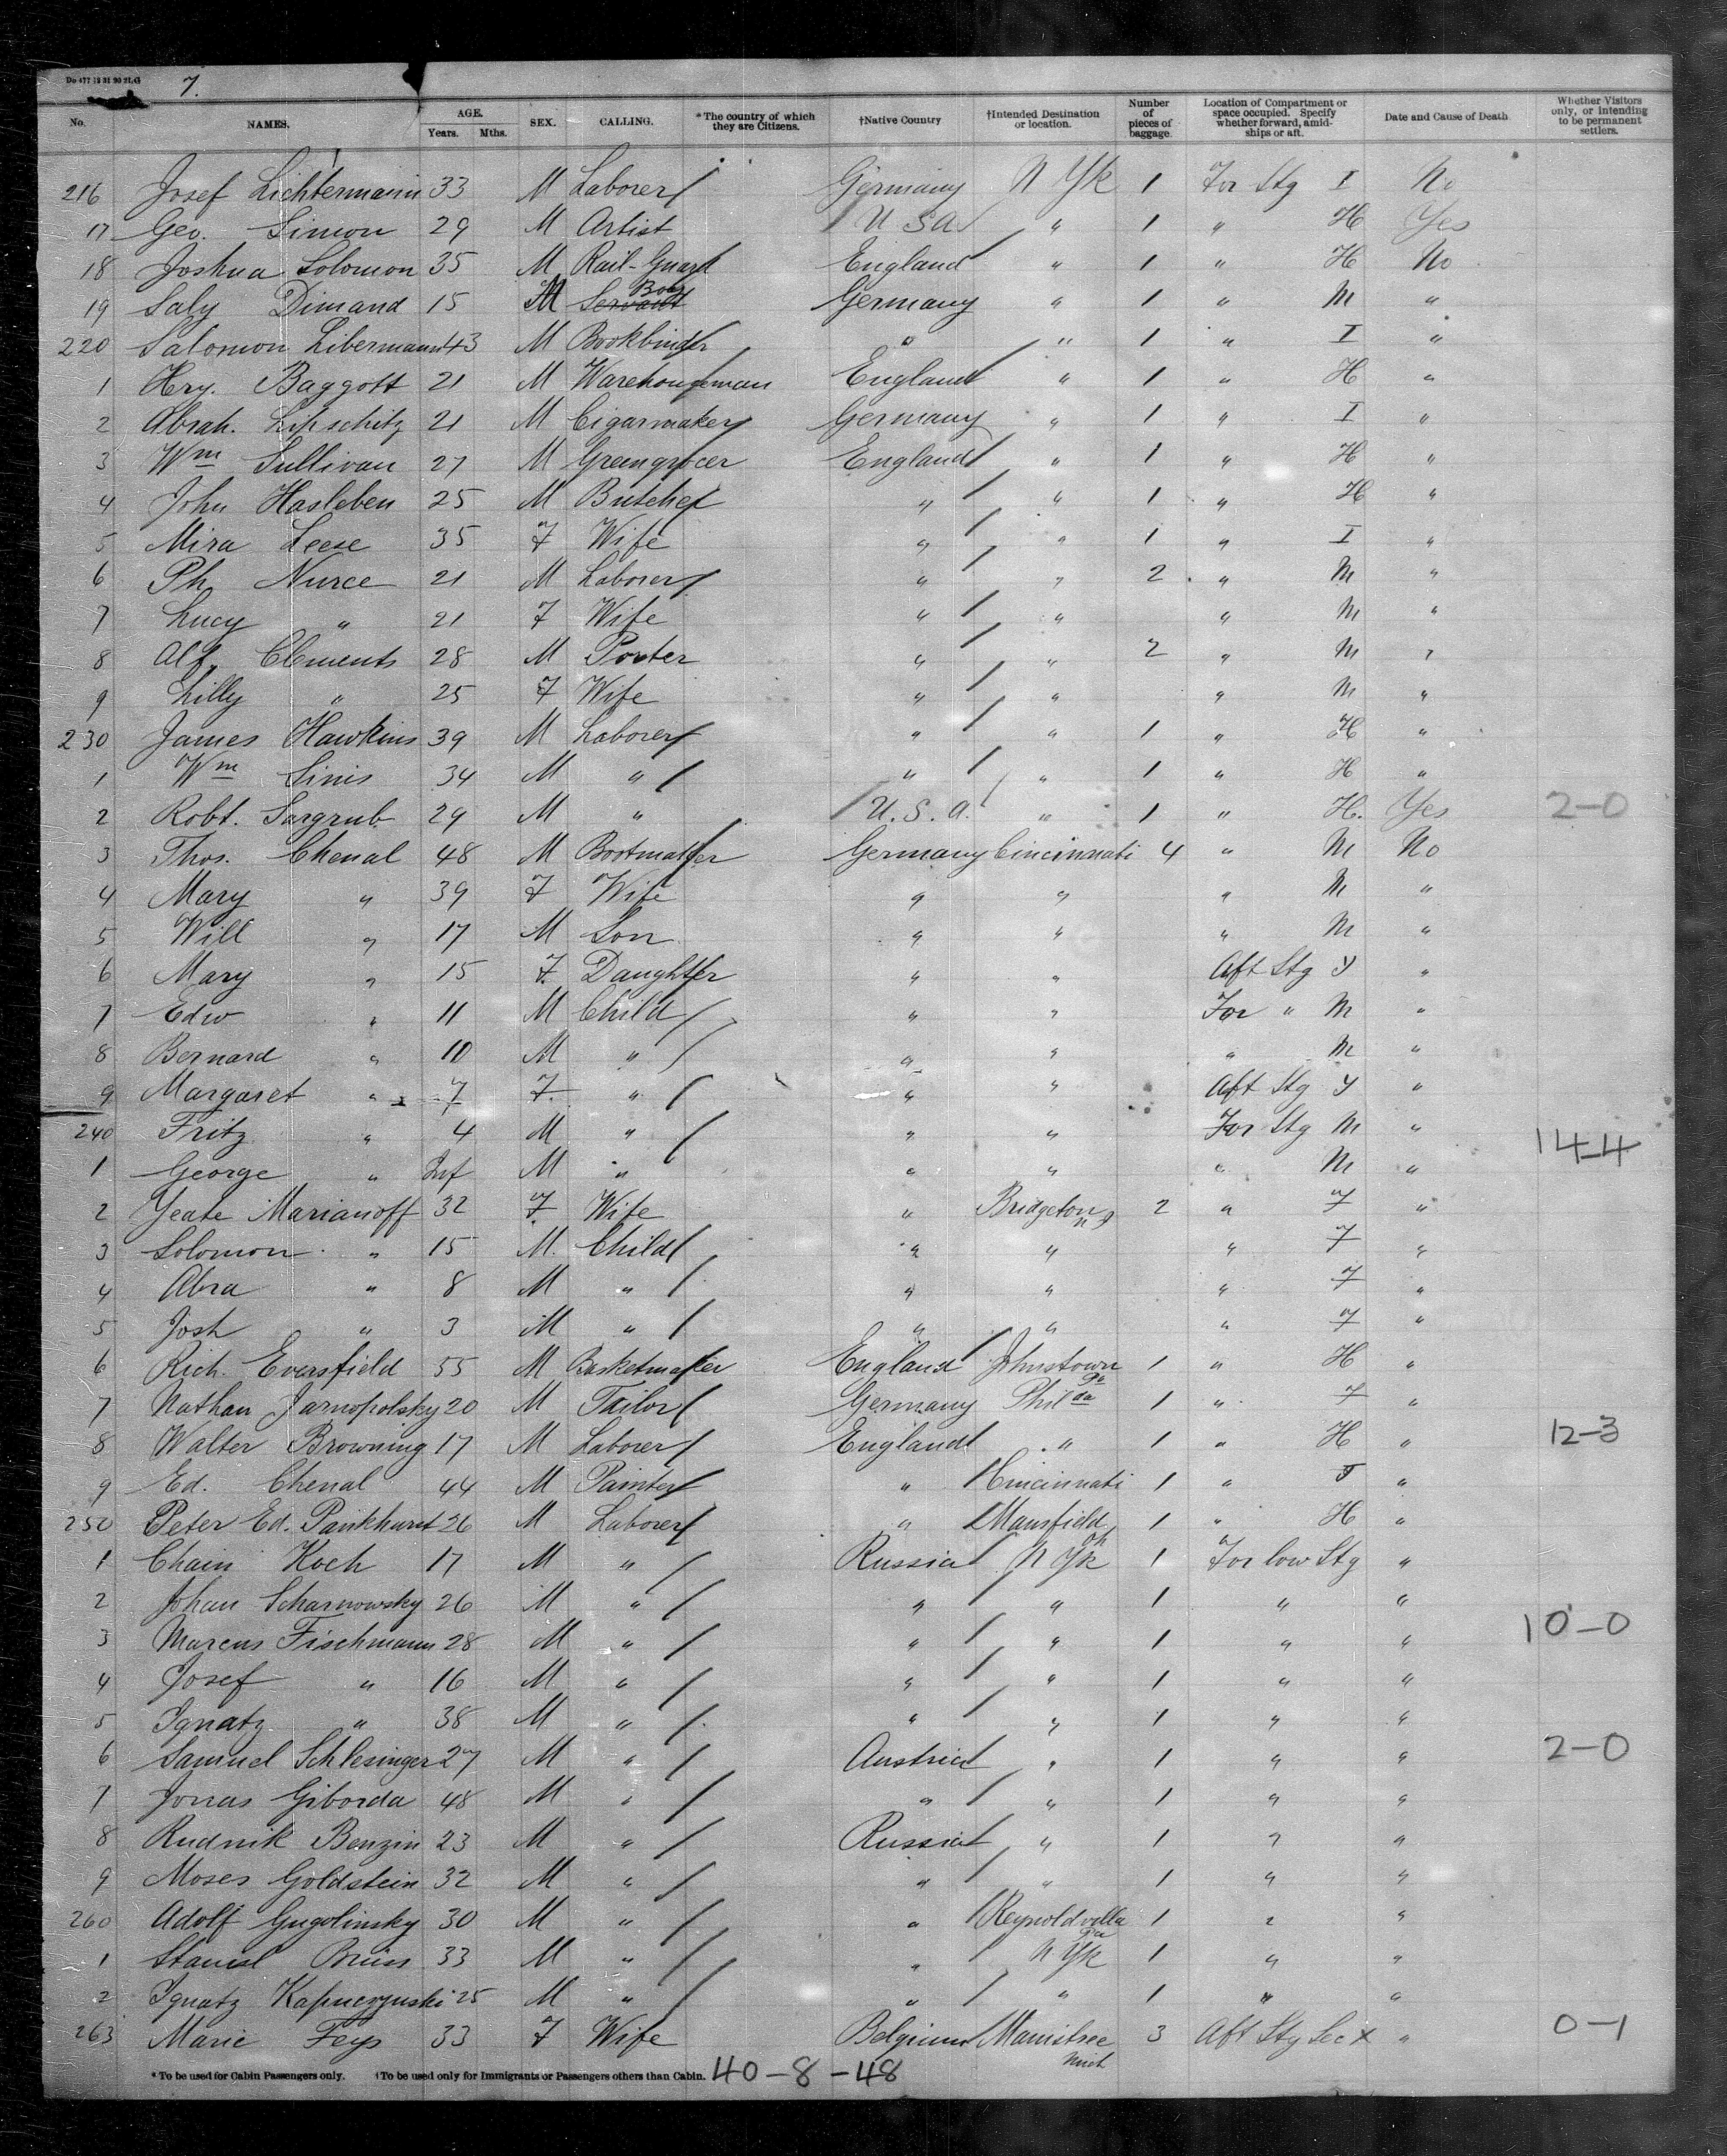 Do 477 15 31 90 21.G
7.
No. NAMES. AGE. Years. Mths. SEX. CALLING. *The country of which they are Citizens. †Native Country †Intended Destination or location. Number of pieces of baggage. Location of Compartment or space occupied. Specify whether forward, amid-ships or aft. Date and Cause of Death Whether Visitors only, or intending to be permanent settlers.
216 Josef Lichtermann 33 M Laborer Germany N Yk 1 For Stg I No
17 Geo. Simon 29 M Artist U S A " 1 " H Yes
18 Joshua Solomon 35 M Rail-Guard England " 1 " H No
19 Saly Dimand 15 M Servant Boy Germany " 1 " M "
220 Salomon Libermann 43 M Bookbinder " " 1 " I "
1 Hry. Baggott 21 M Warehouseman England " 1 " H "
2 Abrah. Lipschitz 21 M Cigarmaker Germany " 1 " I "
3 Wm Sullivan 27 M Greengrocer England " 1 " H "
4 John Hasleben 25 M Butcher " " 1 " H "
5 Mira Leese 35 F Wife " " 1 " I "
6 Ph. Nurce 21 M Laborer " " 2 " M "
7 Lucy " 21 F Wife " " " M "
8 Alf. Clements 28 M Porter " " 2 " M "
9 Lilly " 25 F Wife " " " M "
230 James Hawkins 39 M Laborer " " 1 " H "
1 Wm Sinis 34 M " " " 1 " H "
2 Robt. Sargrub 29 M " U.S.A. " 1 " H. Yes 2-0
3 Thos. Chenal 48 M Bootmaker Germany Cincinnati 4 " M No
4 Mary " 39 F Wife " " " M "
5 Will " 17 M Son " " " M "
6 Mary " 15 F. Daughter " " Aft Stg Y "
7 Edw " 11 M Child " " For " M "
8 Bernard " 10 M " " " " M "
9 Margaret " 7 F. " " " Aft Stg Y "
240 Fritz " 4 M " " " For Stg M "
14-4
1 George " Inf M " " " " M "
2 Yeate Marianoff 32 F. Wife " Bridgeton NJ 2 " F "
3 Solomon " 15 M. Child " " " F "
4 Abra " 8 M " " " " F "
5 Josh " 3 M " " " " F "
6 Rich. Eversfield 55 M Basketmaker England Johnstown Pa 1 " H "
7 Nathan Jarnopolsky 20 M Tailor Germany Philda 1 " F "
8 Walter Browning 17 M Laborer England " 1 " H " 12-3
9 Ed. Chenal 44 M Painter " Cincinnati 1 " J "
250 Peter Ed. Pankhurst 26 M Laborer " Mansfield Oh 1 " H "
1 Chain Koch 17 M " Russia N Yk 1 For low Stg "
2 Johan Scharnowsky 26 M " " " 1 " "
3 Marcus Fischmann 28 M " " " 1 " " 10-0
4 Josef " 16 M " " " 1 " "
5 Ignatz " 38 M " " " 1 " "
6 Samuel Schlesinger 27 M " Austria " 1 " " 2-0
7 Jonas Giborda 48 M " " " 1 " "
8 Rudnik Benzin 23 M " Russia " 1 " "
9 Moses Goldstein 32 M " " " 1 " "
260 Adolf Gugolinsky 30 M " " Reynoldvilla Pa 1 " "
1 Stanisl Bruss 33 M " " N Yk 1 " "
2 Ignatz Kapuczynski 25 M " " " 1 " "
263 Marie Feys 33 F Wife Belgium Manistee Mich 3 Aft Stg Sec X " 0-1
* To be used for Cabin Passengers only. †To be used only for Immigrants or Passengers others than Cabin. 40-8-48